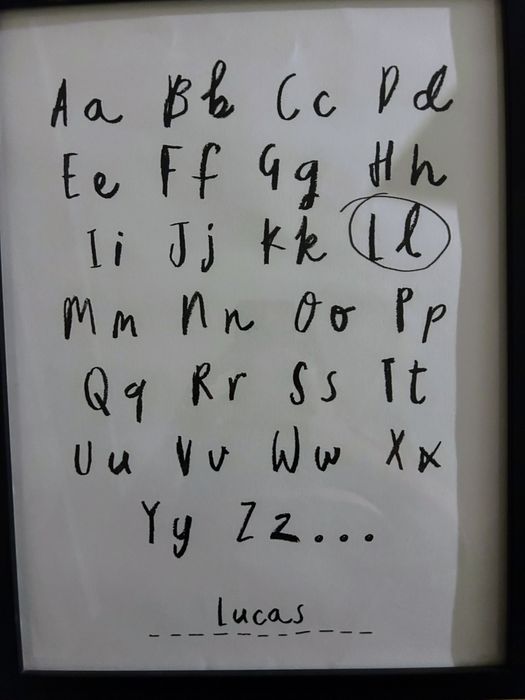 Aa Bb Cc Dd
Ee Ff Gg Hh
Ii Jj Kk Ll
Mm Nn Oo Pp
Qq Rr Ss Tt
Uu Vv Ww Xx
Yy Zz...
Lucas